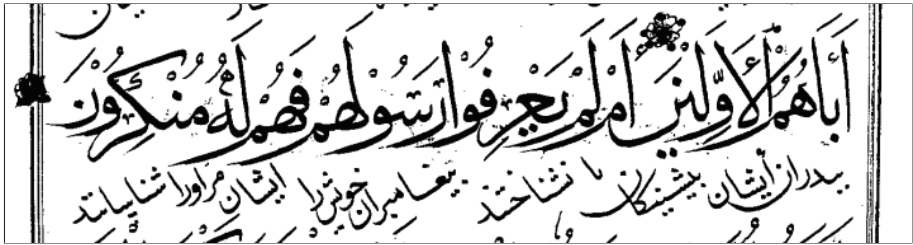 أَبَاهُمُ الْأَوَّلِينَ أَمْ لَمْ يَعْرِفُوْا رَسُوْلَهُمْ فَهُمْ لَهُ مُنْكِرُوْنَ
پدران ایشان پیشینکان یا نشناختند پیغامبران خویش را ایشان مر اورا